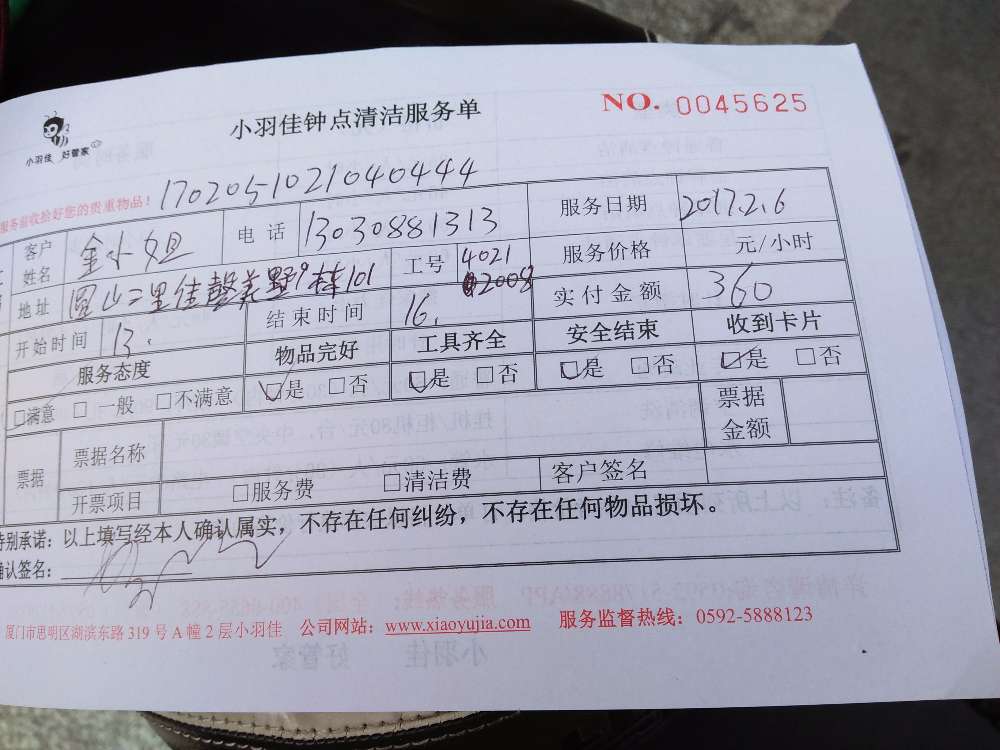 小羽佳 好管家
小羽佳钟点清洁服务单
NO. 0045625
服务验收拾好您的贵重物品！ 1702051021040444
客户姓名 金小姐 电话 13030881313 服务日期 2017.2.6
地址 圆山二里佳馨美野9栋101 工号 4021 2008 服务价格 元/小时
开始时间 13. 结束时间 16. 实付金额 360
服务态度 物品完好 工具齐全 安全结束 收到卡片
□满意 □一般 □不满意 □是 □否 □是 □否 □是 □否 □是 □否
票据 票据名称 票据金额
开票项目 □服务费 □清洁费 客户签名
特别承诺：以上填写经本人确认属实，不存在任何纠纷，不存在任何物品损坏。
确认签名：
厦门市思明区湖滨东路 319 号 A 幢 2 层小羽佳 公司网站：www.xiaoyujia.com 服务监督热线：0592-5888123